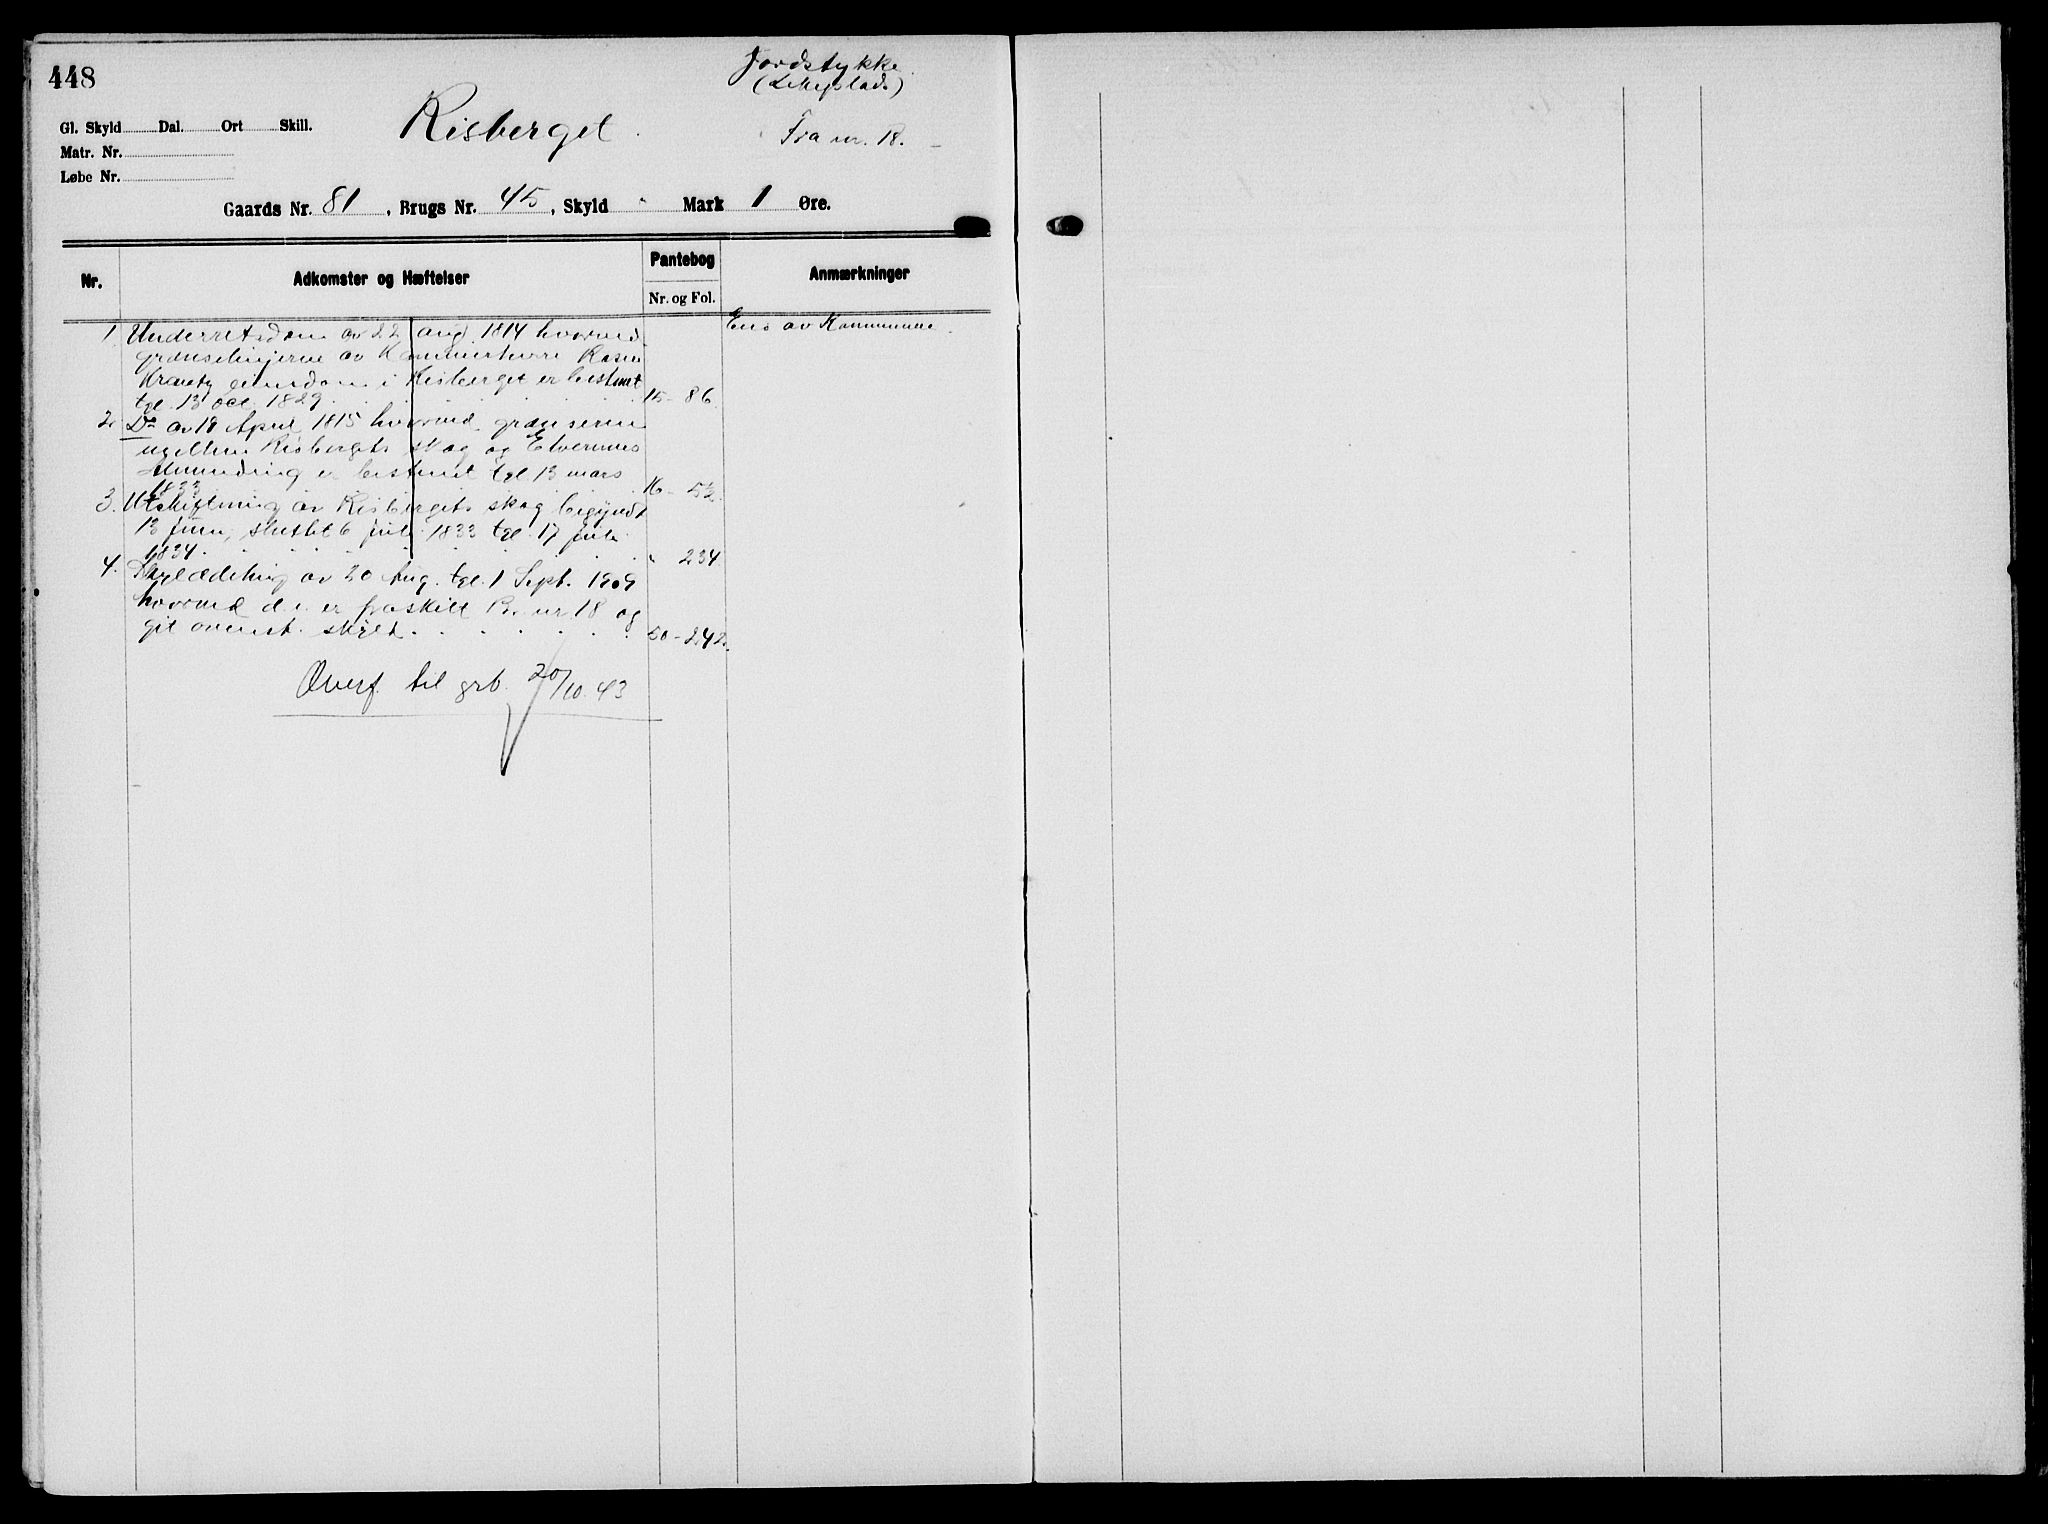 448
Jordstykke
Gl. Skyld Dal. Ort Skill.
Risberget.
Fra nr. 18.
Matr. Nr.
Løbe Nr.
Gaards Nr. 81, Brugs Nr. 45, Skyld " Mark 1 Øre.
Nr. Adkomster og Hæftelser Pantebog Anmærkninger
Nr. og Fol.
1. Underretsdom av 22 aug. 1814 hvorved Eies av Kommunen.
grænselinjerne av Kammerherre Rosen
Krantz eiendom i Risberget er bestemt
tgl. 13 oct. 1829 15 - 86.
2. Do av 18 April 1815 hvorved grænserne
mellem Risbergets skog og Elverums
Almindning er bestemt tgl 13 mars
1833 16 - 52.
3. Utskiftning av Risbergets skog begyndt
13 juni, sluttet 6 juli 1833 tgl. 17 juli
1834. " 234
4. Skylddeling av 20 Aug. tgl. 1 Sept. 1909
hvorved d. e. er fraskilt Br. nr 18 og
git ovenst. skyld. 50 - 242.
Overf. til grb. 20/10. 43